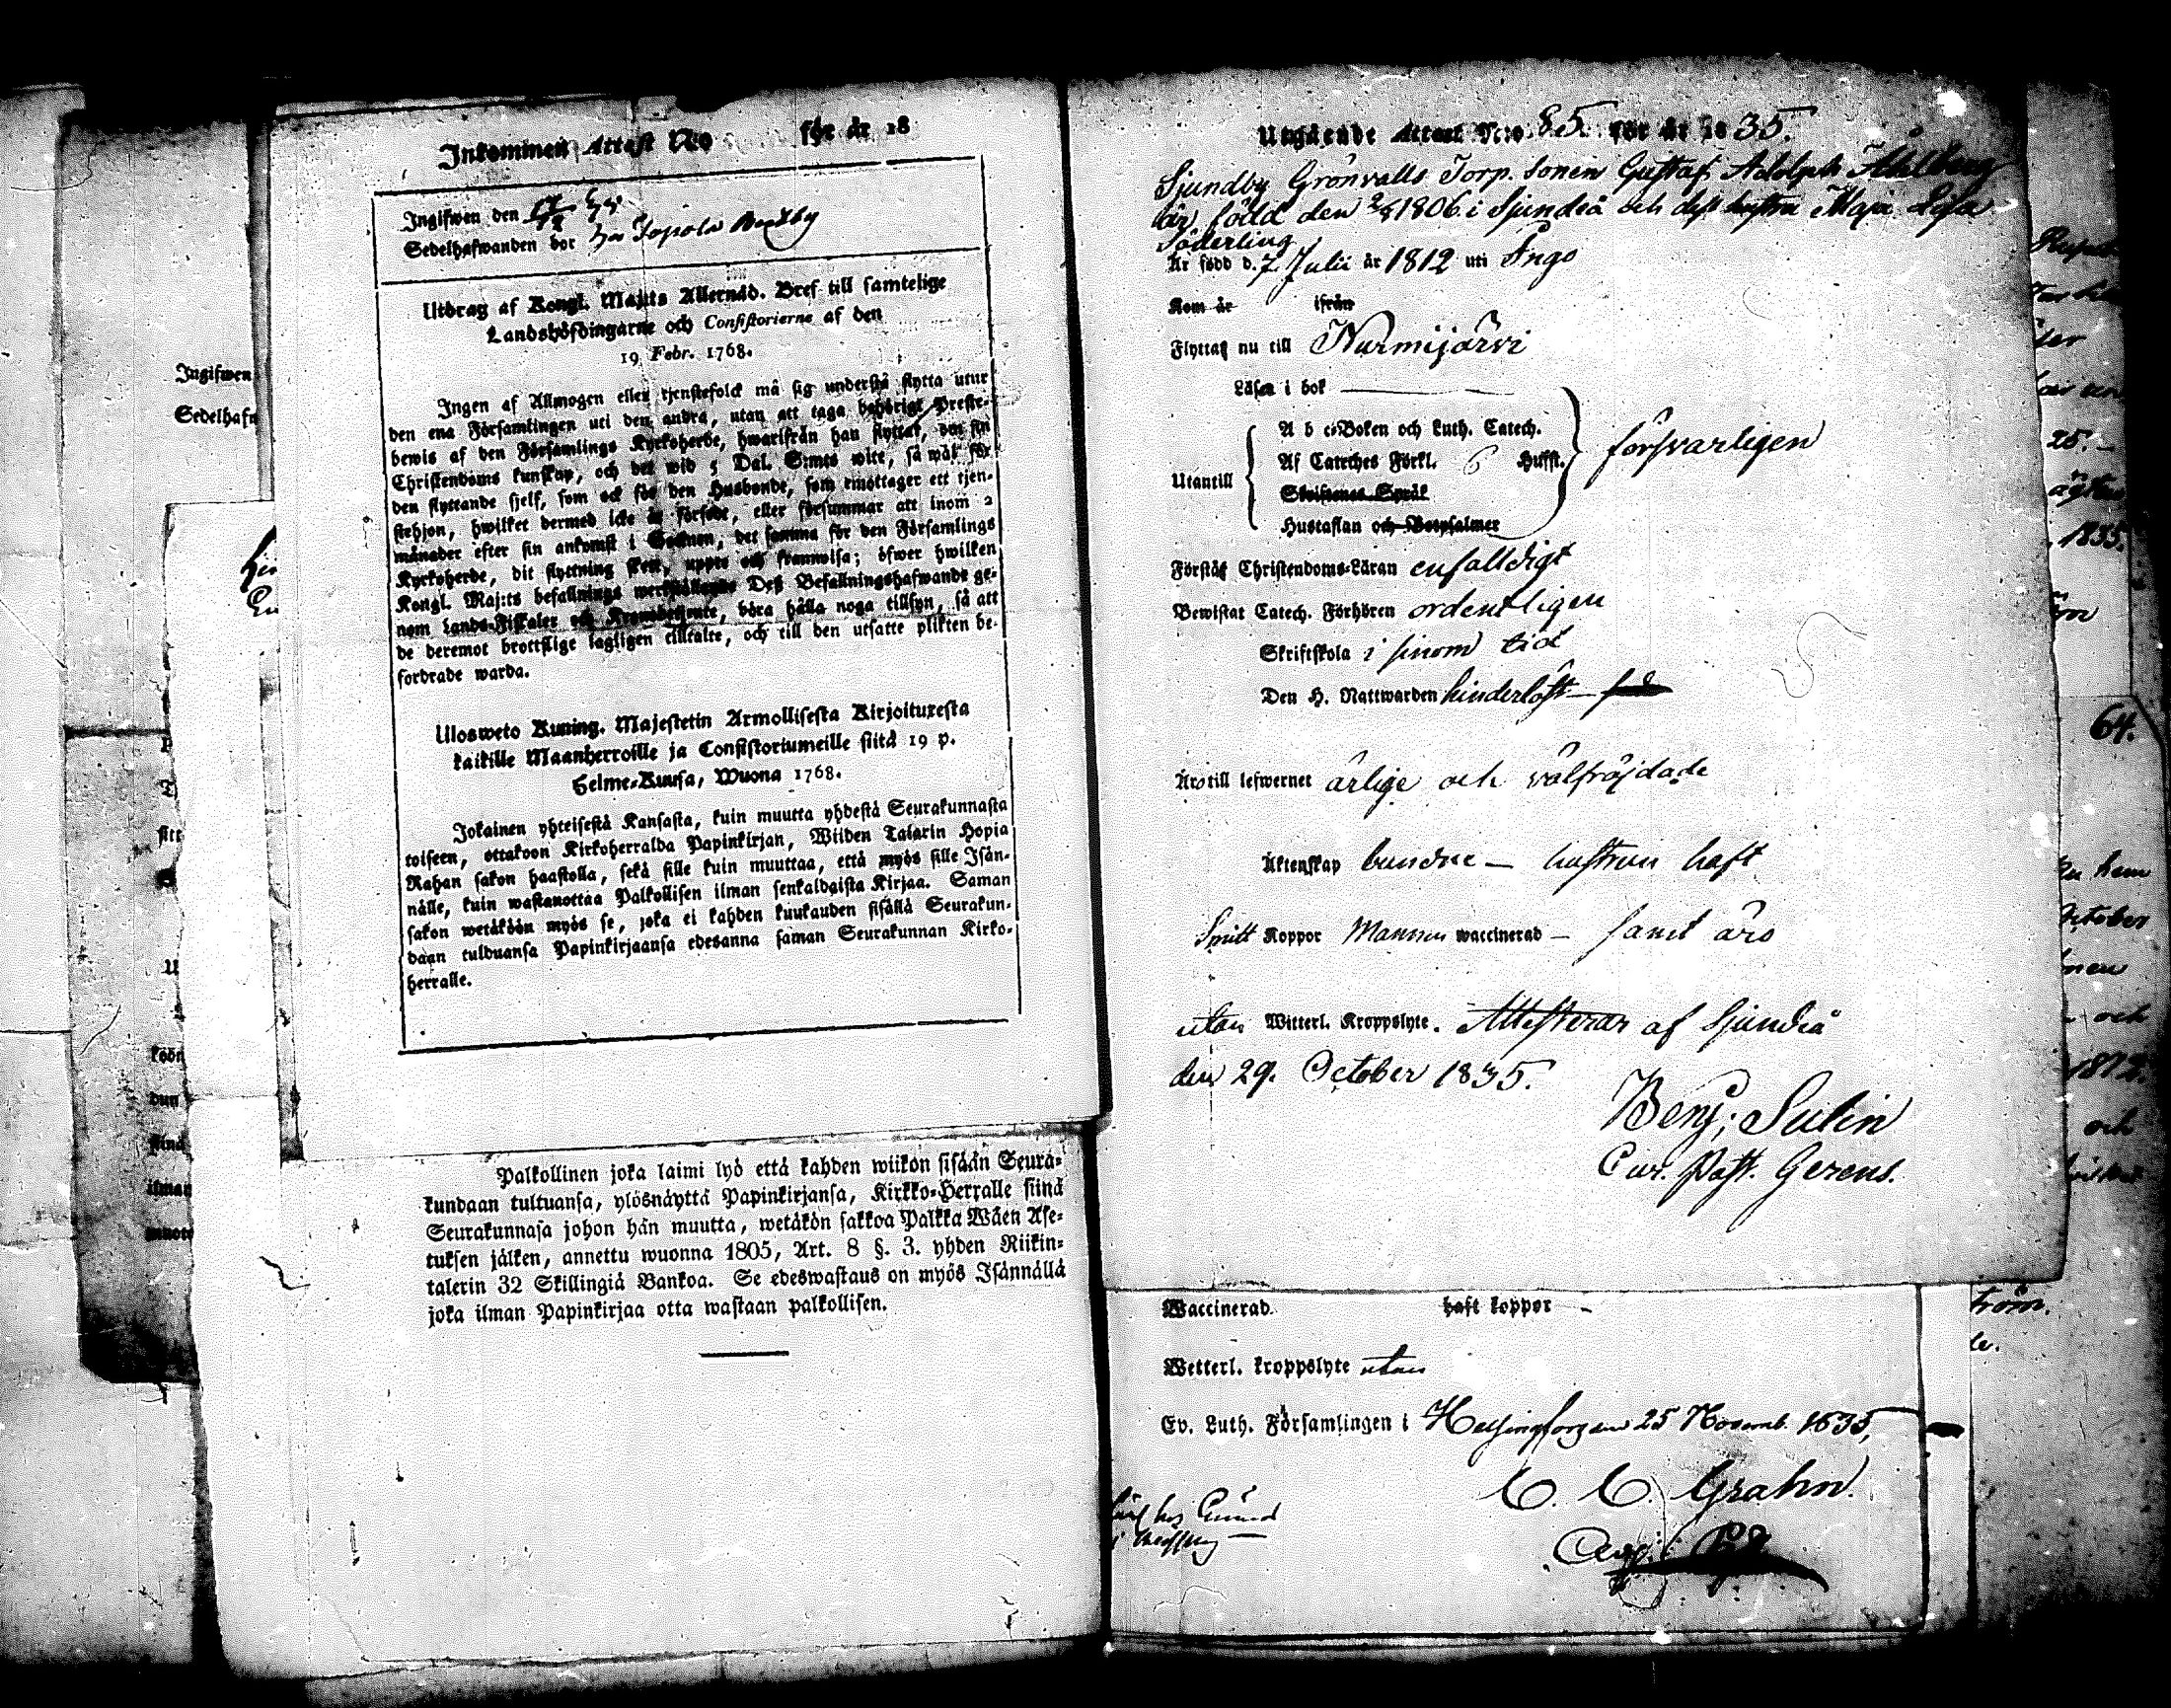 Inkommen Attest N:o för år 18
Ingifwen den 17/12 35
Sedelhafwanden bor hos Topola
Utdrag af Kongl. Maj:ts Allernåd. Bref till samtelige
Landshöfdingarne och Consistorierne af den
19 Febr. 1768.
Ingen af Allmogen eller tjenstefolck må sig understå flytta utur
den ena Församlingen uti den andra, utan att taga behörigt Preste-
bewis af den Församlings Kyrkoherde, hwarifrån han flyttar, om sin
Christendoms kunskap, och det wid 5 Dal. S:mts wite, så wäl för
den flyttande sjelf, som ock för den Husbonde, som emottager ett tjen-
stehjon, hwilket dermed icke är försedt, eller försummar att inom 2
månader efter sin ankomst i Socknen, det samma för den Församlings
Kyrkoherde, dit flyttning skett, uppte och framwisa; öfwer hwilken
Kongl. Maj:ts befallnings werkställande Deß Befallningshafwande ge-
nom Lands-Fiskaler och Kronobetjente, böra hålla noga tillsyn, så att
de deremot brottslige lagligen tilltalte, och till den utsatte plikten be-
fordrade warda.
Ulosweto Kuning. Majestetin Armollisesta Kirjoituxesta
kaikille Maanherroille ja Consistoriumeille siitä 19 p.
Helme-Kuusa, Wuona 1768.
Jokainen yhteisestä Kansasta, kuin muutta yhdestä Seurakunnasta
toiseen, ottakoon Kirkoherralda Papinkirjan, Wiiden Talarin Hopia
Rahan sakon haastolla, sekä sille kuin muuttaa, että myös sille Isän-
nälle, kuin wastanottaa Palkollisen ilman senkaldaista Kirjaa. Saman
sakon wetäköön myös se, joka ei kahden kuukauden sisällä Seurakun-
daan tulduansa Papinkirjaansa edesanna saman Seurakunnan Kirko-
herralle.
Palkollinen joka laimi lyö että kahden wiikon sisään Seura-
kundaan tultuansa, ylösnäyttä Papinkirjansa, Kirkko-Herralle siinä
Seurakunnasa johon hän muutta, wetäkön sakkoa Palkka Wäen Ase-
tuksen jälken, annettu wuonna 1805, Art. 8 §. 3. yhden Riikin-
talerin 32 Skillingiä Bankoa. Se edeswastaus on myös Isännällä
joka ilman Papinkirjaa otta wastaan palkollisen.
Utgående Attest N:o 85. för år 1835.
Sjundby Grönvalls Torp. sonen Gustaf Adolph Åhlberg
är född den 2/8 1806 i Sjundeå och dess hustru Maja Lisa
Söderling
Är född d. 7 Julii år 1812 uti Ingo
Kom år ifrån
Flyttar nu till Nurmijärvi
Läser i bok
A b c-Boken och Luth. Catech.
Af Catechis Förkl. 6 Hufst.
försvarligen
Utantill
Skriftenes Språk
Hustaflan och Botpsalmer
Förstår Christendoms-Läran enfalldigt
Bewistat Catech. Förhören ordentligen
Skriftskola i sinom tid
Den H. Nattwarden hinderlöst
Äro till lefwernet ärlige och välfräjdade
Äktenskap bundne – hustrun haft
Smitt Koppor Mannen waccinerad – samt äro
utan Witterl. Kroppslyte. Attesterar af Sjundeå
den 29. October 1835.
Benj; Sulin
Cur. Past. Gerens.
Waccinerad haft koppor –
Wetterl. kroppslyte utan
Ev. Luth. Församlingen i Helsingfors den 25 Novemb. 1835,
C. C. Grahn.
Ingifwen
Sedelhafw
1835.
64.
1812.